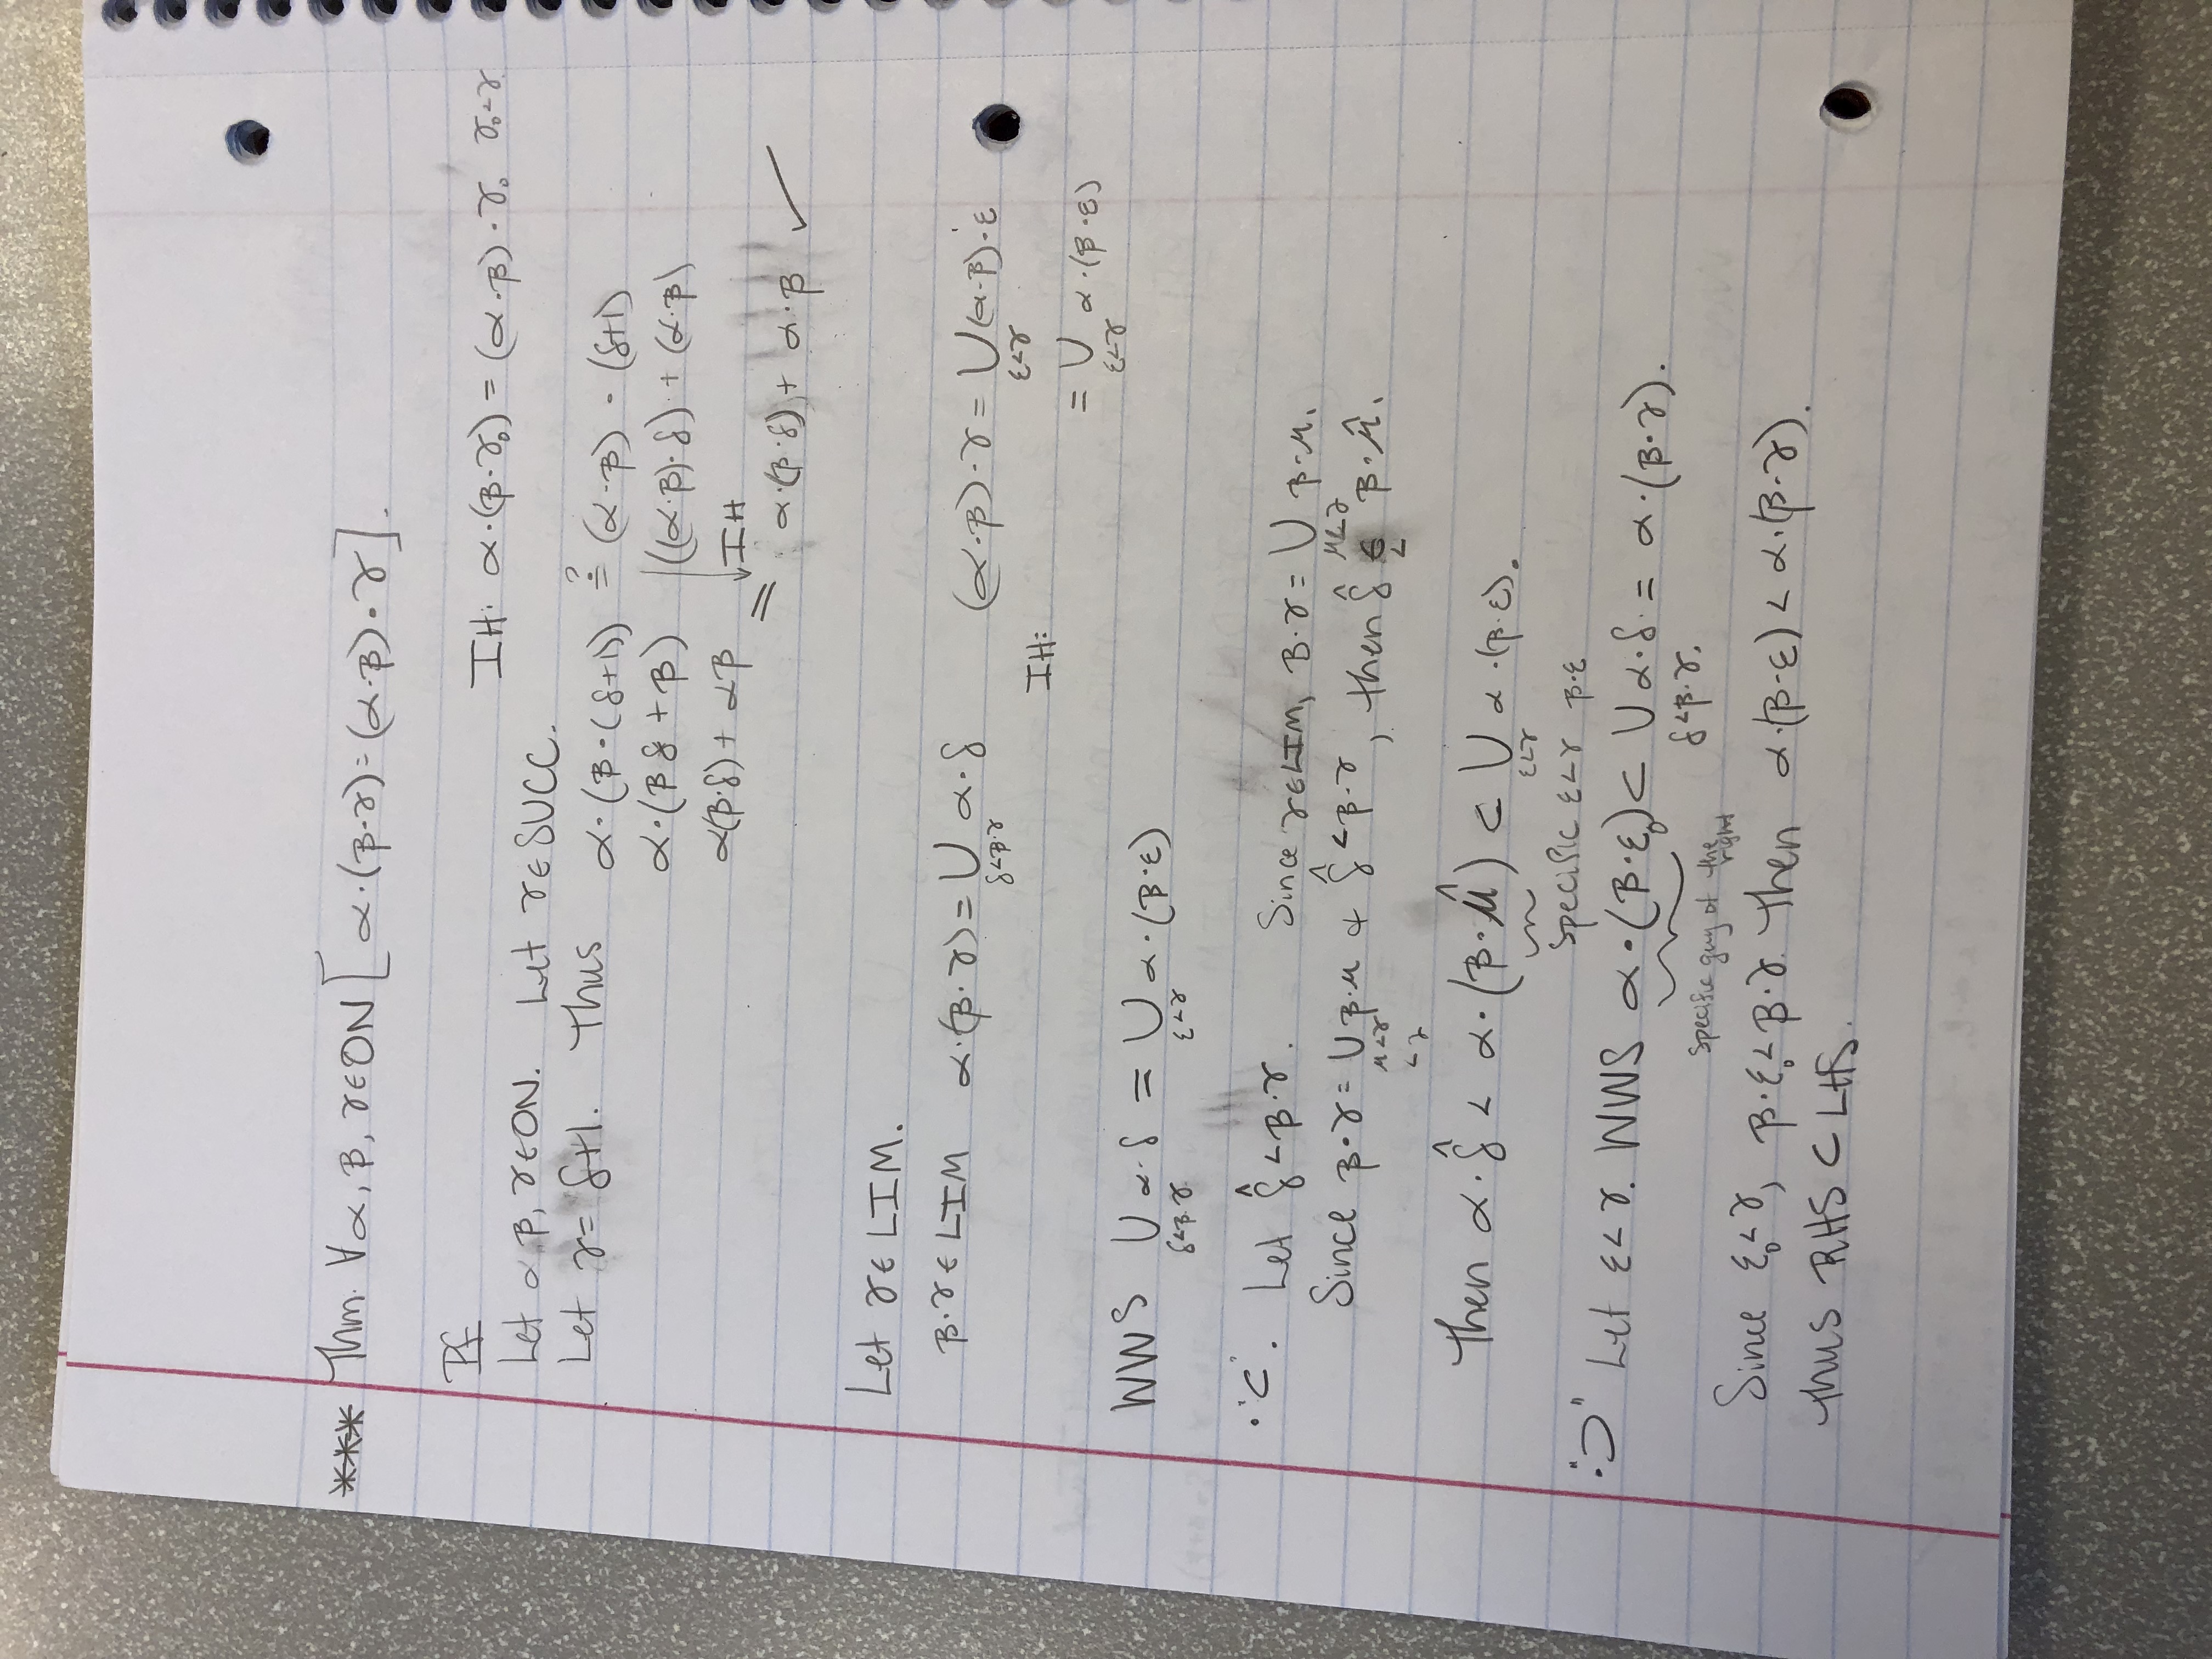 *** Thm. ∀α, β, γ∈ON [ α·(β·γ)=(α·β)·γ ].
Pf
IH: α·(β·γ₀) = (α·β)·γ₀ γ₀<γ
Let α β, γ∈ON. Let γ∈SUCC.
Let γ= δ+1. Thus α·(β·(δ+1)) ≟ (α·β)·(δ+1)
α·(βδ + β) ((α·β)·δ) + (α·β)
α(β·δ) + αβ ↓IH
= α·(β·δ) + α·β ✓
Let γ∈LIM.
β·γ∈LIM α·(β·γ)= ⋃ α·δ (α·β)·γ = ⋃(α·β)·ε
δ<β·γ ε<γ
IH: = ⋃ α·(β·ε)
ε<γ
WWS ⋃ α·δ = ⋃ α·(β·ε)
δ<β·γ ε<γ
·'⊂'. Let δ̂<β·γ. Since γ∈LIM, β·γ = ⋃ β·μ.
μ<γ
Since β·γ= ⋃β·μ & δ̂<β·γ, then δ̂ < β·μ̂.
μ<γ
<γ
Then α·δ̂ < α·(β·μ̂) ⊂ ⋃ α·(β·ε).
ε<γ
Specific ε<γ β·ε
:"⊃" Let ε<γ. WWS α·(β·ε₀)⊂ ⋃ α·δ = α·(β·γ).
δ<β·γ.
Specific guy of the right
Since ε₀<γ, β·ε₀<β·γ. Then α·(β·ε) < α·(β·γ).
Thus RHS ⊂ LHS.